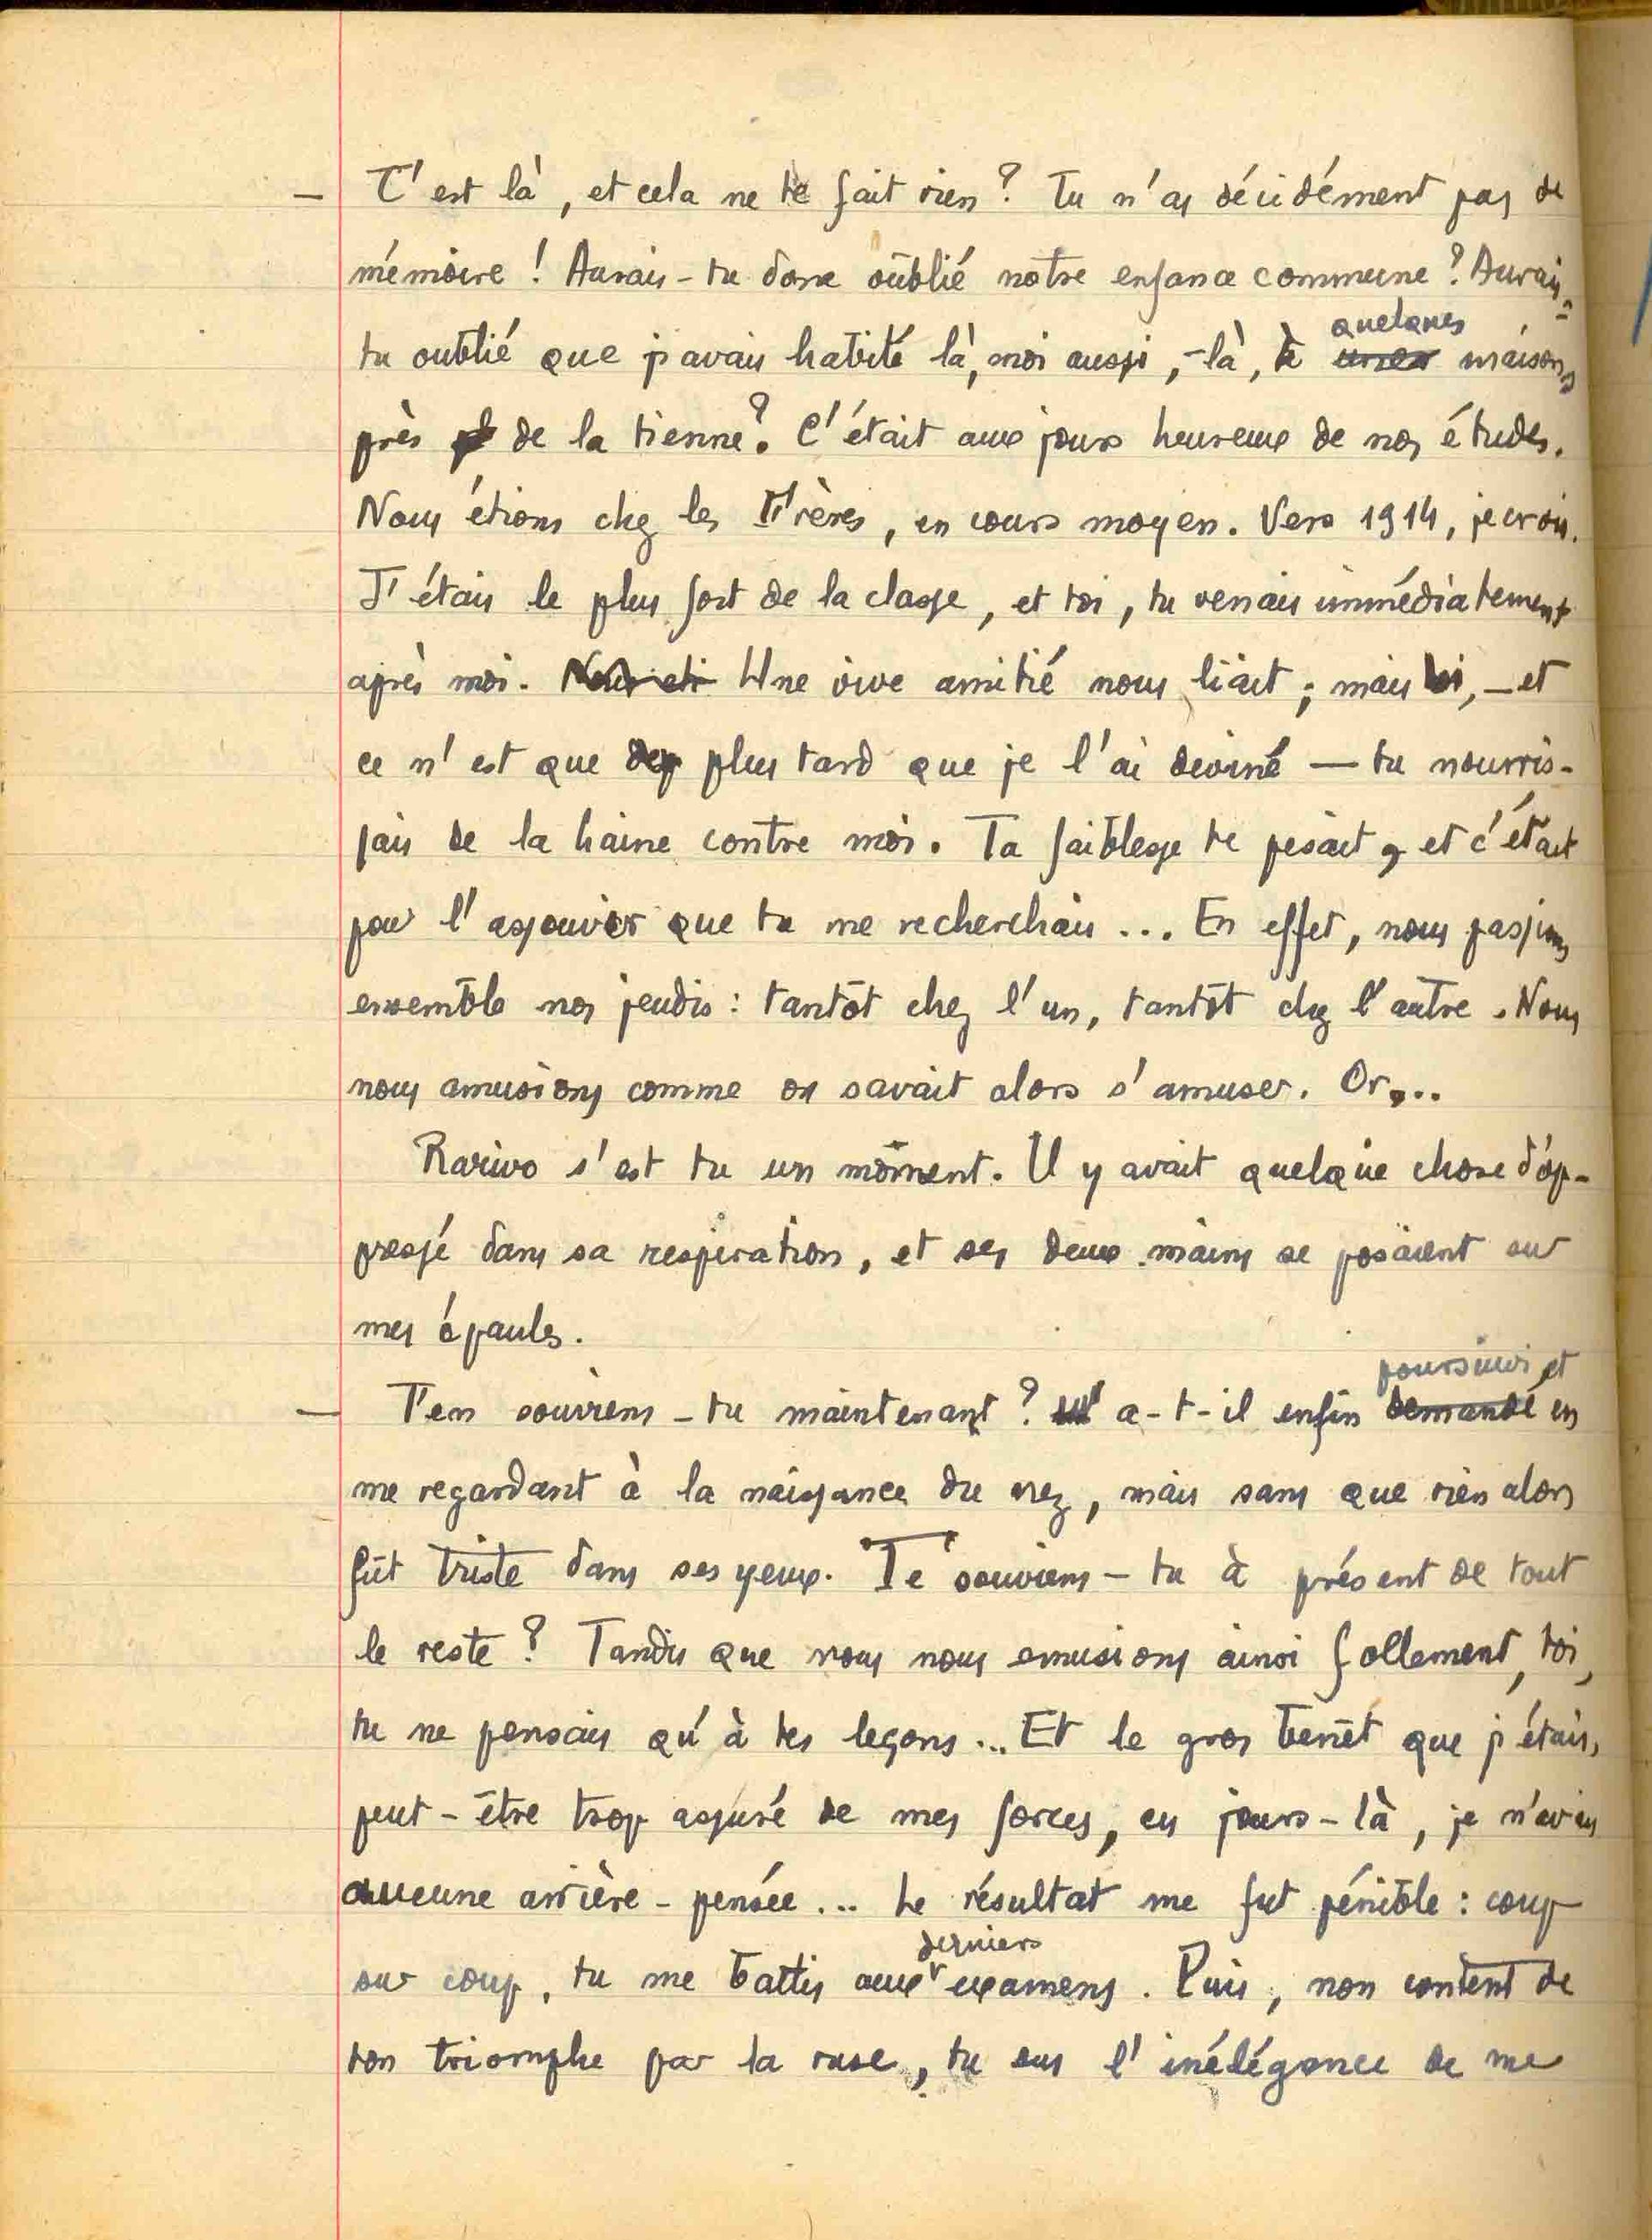 — C'est là, et cela ne te fait rien ? Tu n'as décidément pas de
mémoire ! Aurais-tu donc oublié notre enfance commune ? Aurais-
quelques
tu oublié que j'avais habité là, moi aussi, -là, à maisons
près de la tienne ? C'était aux jours heureux de nos études.
Nous étions chez les Frères, en cours moyen. Vers 1914, je crois.
J'étais le plus fort de la classe, et toi, tu venais immédiatement
après moi. Une vive amitié nous liait ; mais toi, — et
ce n'est que plus tard que je l'ai deviné — tu nourris-
sais de la haine contre moi. Ta faiblesse te pesait, et c'était
pour l'assouvir que tu me recherchais ... En effet, nous passions
ensemble nos jeudis : tantôt chez l'un, tantôt chez l'autre. Nous
nous amusions comme on savait alors s'amuser. Or,..
Rarivo s'est tu un moment. Il y avait quelque chose d'op-
pressé dans sa respiration, et ses deux mains se posaient sur
mes épaules.
poursuivi, et
— T'en souviens-tu maintenant ? a-t-il enfin demandé en
me regardant à la naissance du nez, mais sans que rien alors
fût triste dans ses yeux. Te souviens-tu à présent de tout
le reste ? Tandis que nous nous amusions ainsi follement, toi,
tu ne pensais qu'à tes leçons ... Et le gros benêt que j'étais,
peut-être trop assuré de mes forces, en jours-là, je n'avais
aucune arrière-pensée ... Le résultat me fut pénible : coup
derniers
sur coup, tu me battis aux examens. Puis, non content de
ton triomphe par la ruse, tu eus l'inélégance de me